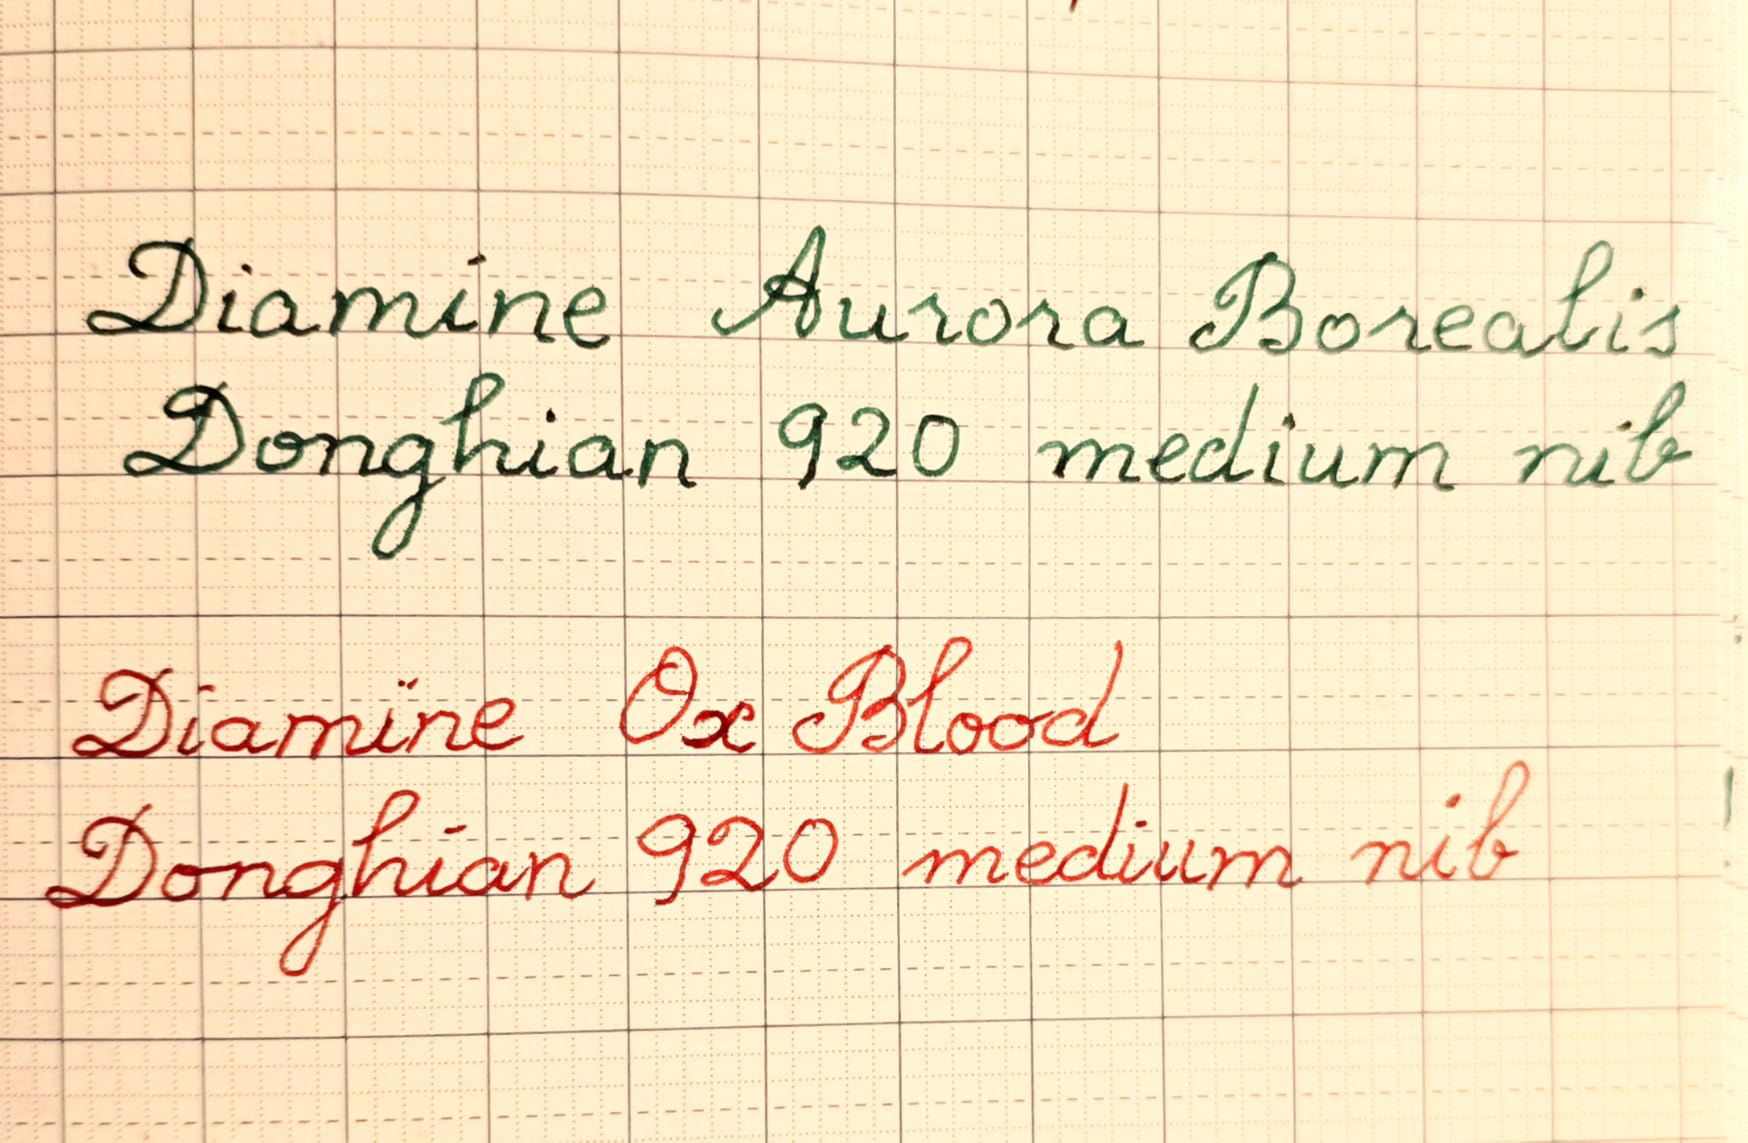 Diamine Aurora Borealis
Donghian 920 medium nib
Diamine Ox Blood
Donghian 920 medium nib